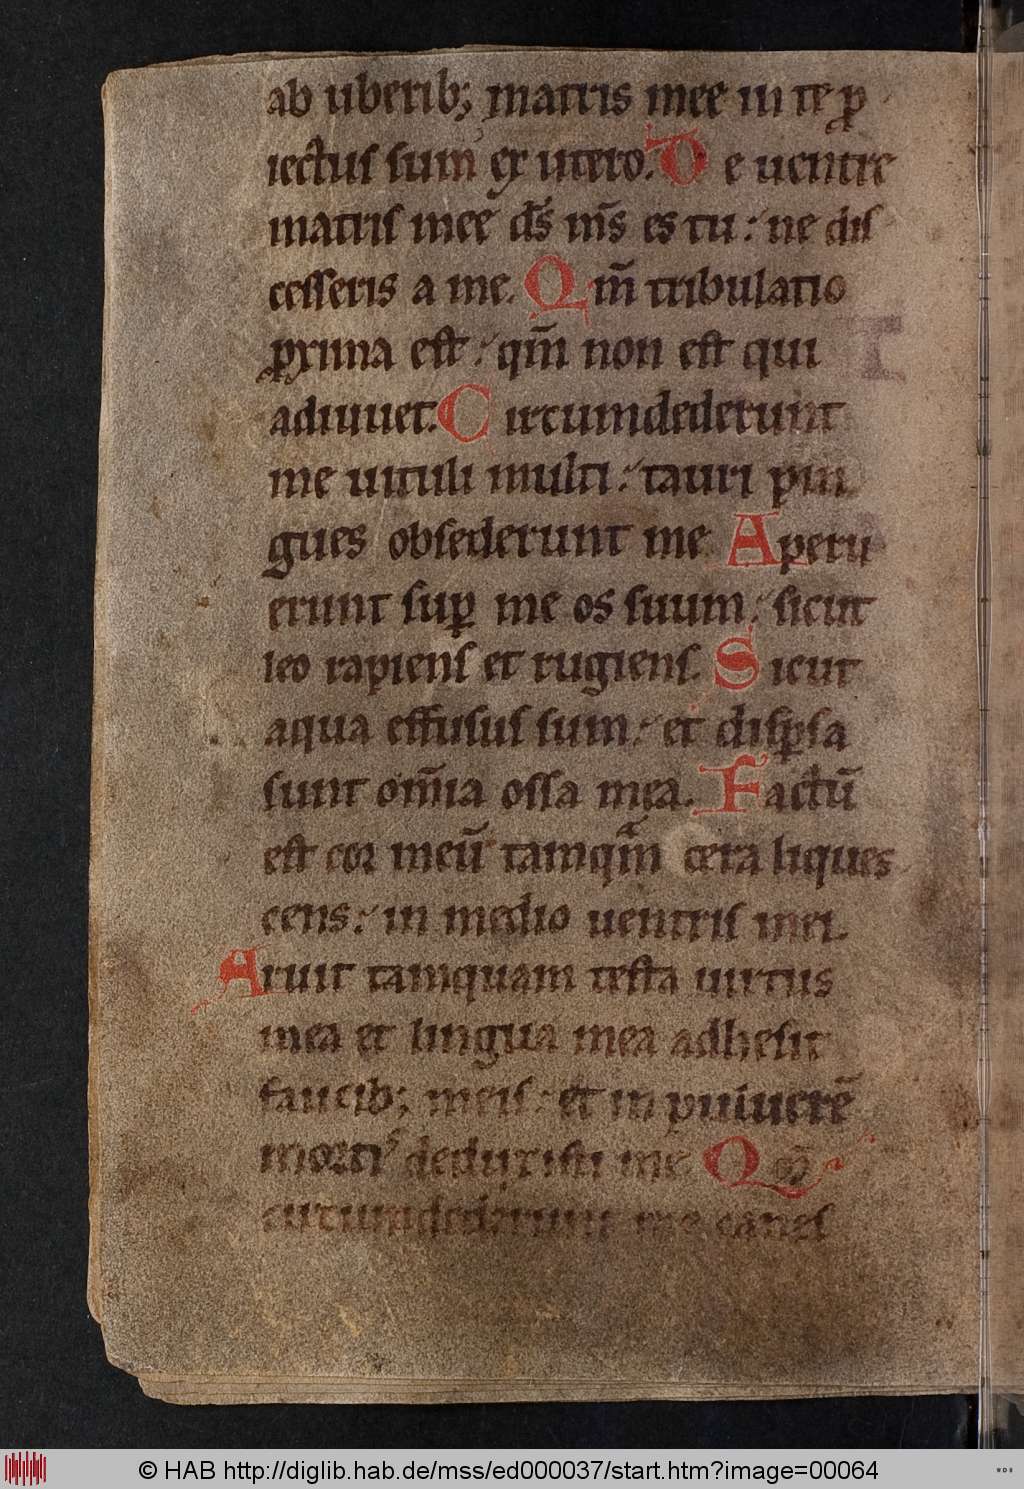 ab uberib; matris mee in te ꝓ
iectus sum ex utero. De uentre
matris mee ds̄ ms̄ es tu: ne dis
cesseris a me. Qm̄ tribulatio
ꝓxima est: qm̄ non est qui
adiuuet. Circumdederunt
me uituli multi: tauri pin
gues obsederunt me. Aperu
erunt suꝑ me os suum: sicut
leo rapiens et rugiens. Sicut
aqua effusus sum: et disꝑsa
sunt om̄ia ossa mea. Factū
est cor meū tamqm̄ cera liques
cens: in medio uentris mei.
Aruit tamquam testa uirtus
mea et lingua mea adhesit
faucib; meis: et in puluerē
mortis deduxisti me. Qm̄
circumdederunt me canes
© HAB http://diglib.hab.de/mss/ed000037/start.htm?image=00064